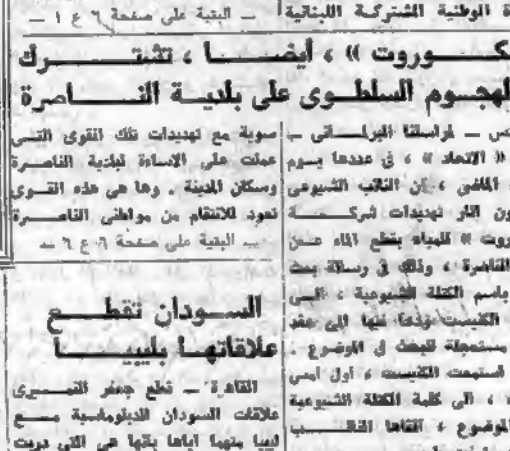 ة الوطنية المشتركة اللبنانية
ـ البقية على صفحة ٦ ع ١ ـ
كوروت » ، أيضا ، تشترك
لهجوم السلطوى على بلدية الناصرة
ـ لمراسلنا البرلمانى ـ
« الاتحاد » ، في عددها يسوم
الماضي ، أن النائب الشيوعي
ون اثار تهديدات شركة
روت » للمياه بقطع الماء عن
الناصرة ، وذلك في رسالة بعث
باسم الكتلة الشيوعية ، الى
الكنيست ودعا فيها الى عقد
مستعجلة للبحث في الموضوع .
استمعت الكنيست ، أول أمس
، الى كلمة الكتلة الشيوعية
الموضوع ، القاها النائب
سوية مع تهديدات تلك القوى التي
عملت على الاساءة لبلدية الناصرة
وسكان المدينة . وها هي هذه القوى
تعود للانتقام من مواطني الناصرة
ـ البقية على صفحة ٦ ع ٦ ـ
السودان تقطع
علاقاتها بليبيا
القاهرة ـ قطع جعفر النميرى
علاقات السودان الدبلوماسية مع
ليبيا متهما اياها بانها هي التي دبرت